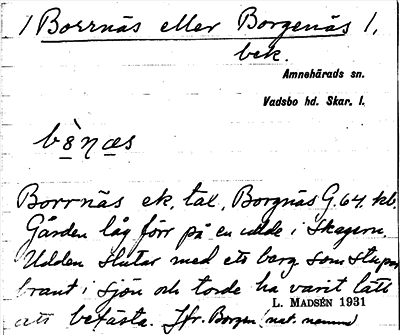 1 Borrnäs eller Borgenäs 1,
bek.
Amnehärads sn.
Vadsbo hd. Skar. l.
Borrnäs ek. tax, Borgnäs G. 64. kb.
Gården låg förr på en udde i Skagern.
Udden slutar med ett berg som stupar
brant i sjön och torde ha varit lätt
att befästa. Jfr. Borgen (nat. namn)
L. MADSÉN 1931